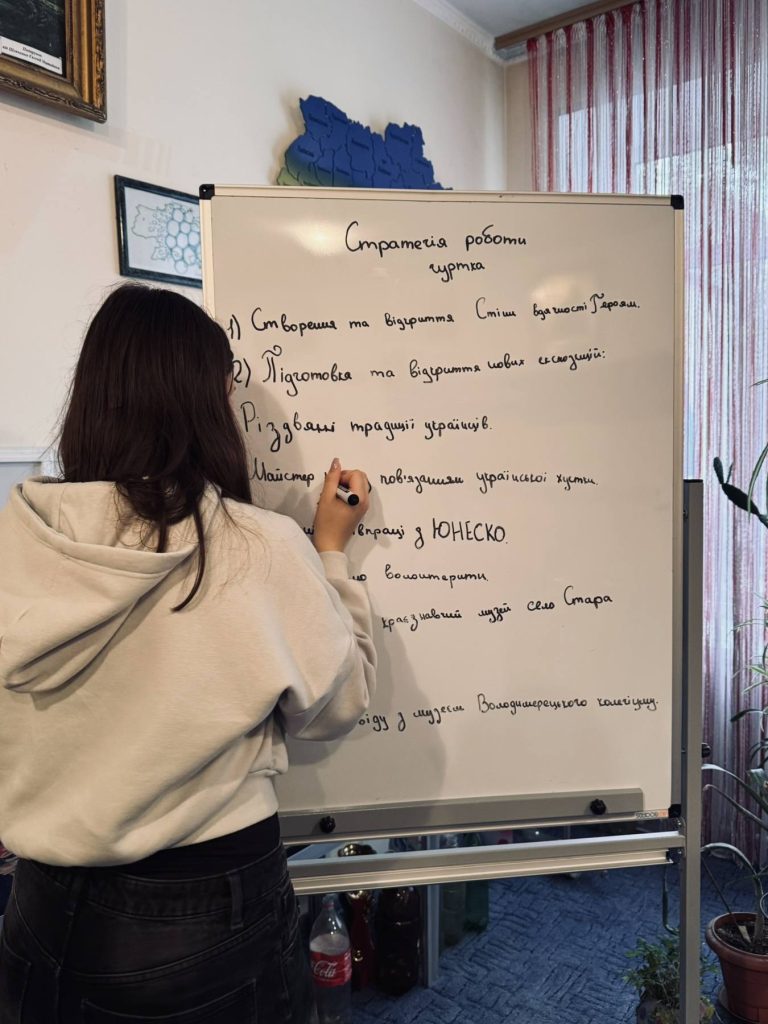 Стратегія роботи
гуртка
1) Створення та відкриття Стіни вдячності Героям.
2) Підготовка та відкриття нових експозицій:
Різдвяні традиції українців.
Майстер пов'язанням української хустки.
півпраці з ЮНЕСКО.
волонтерити.
краєзнавчий музей село Стара
з музеєм Володимерецького колегіуму.
Coca-Cola